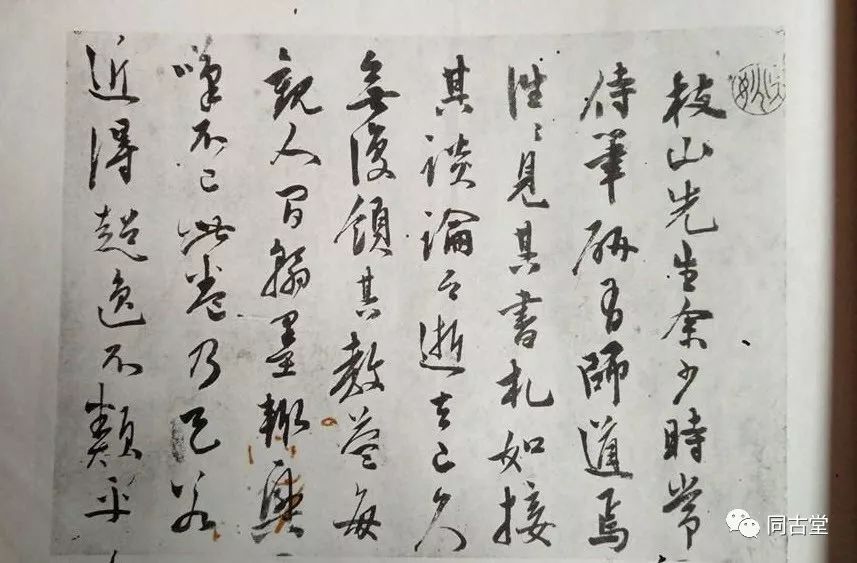 枝山先生余少時常
侍筆研有師道焉
往〻見其書札如接
其談論今逝去已久
無復領其教益每
観人間翰墨輙興
嘆不已此卷乃
近得超逸不類平
同古堂